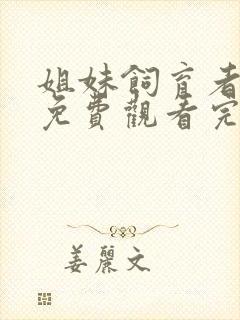 姐妹飼育者
免費觀看完
姜麗文